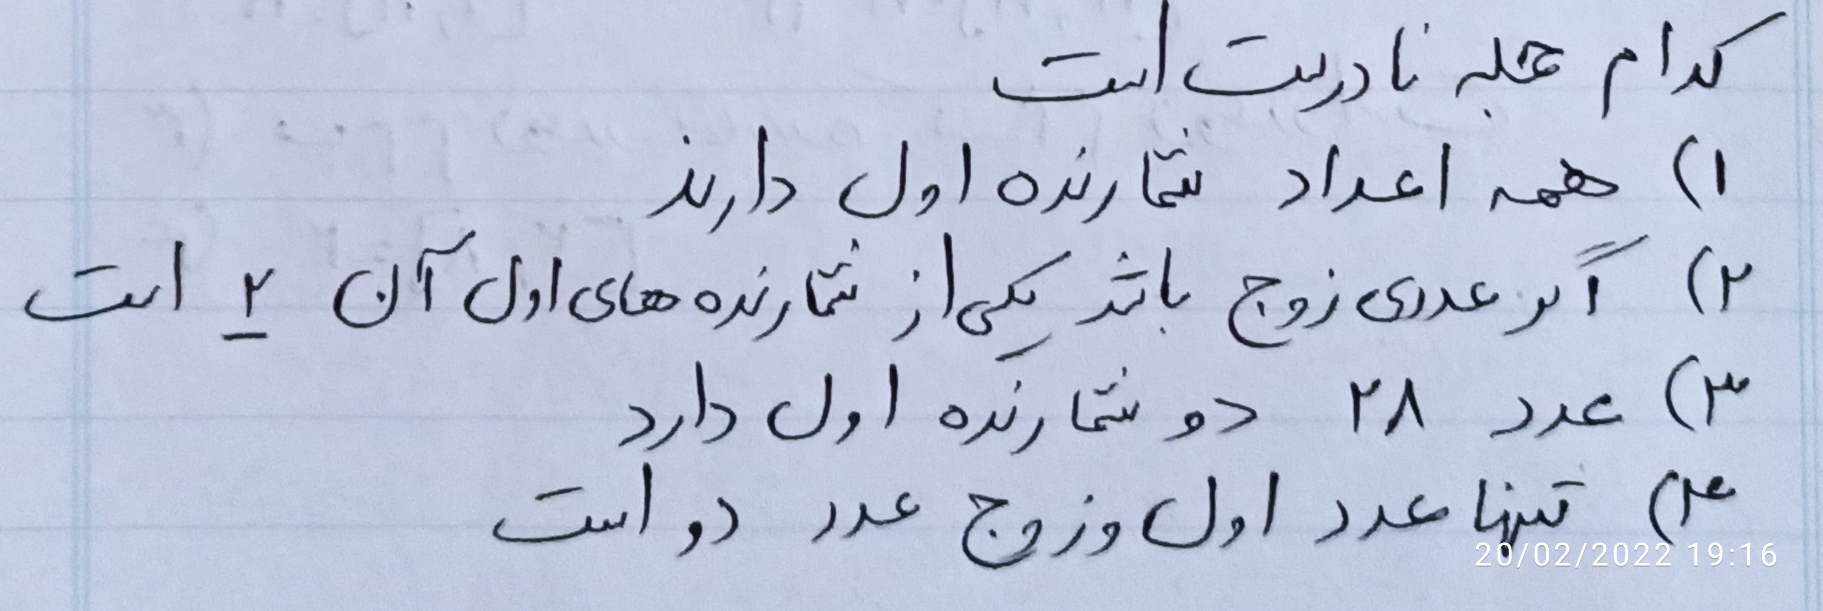 کدام جمله نادرست است
۱) همه اعداد شمارنده اول دارند
۲) اگر عددی زوج باشد یکی از شمارنده های اول آن ۲ است
۳) عدد ۲۸ دو شمارنده اول دارد
۴) تنها عدد اول و زوج عدد دو است
20/02/2022 19:16